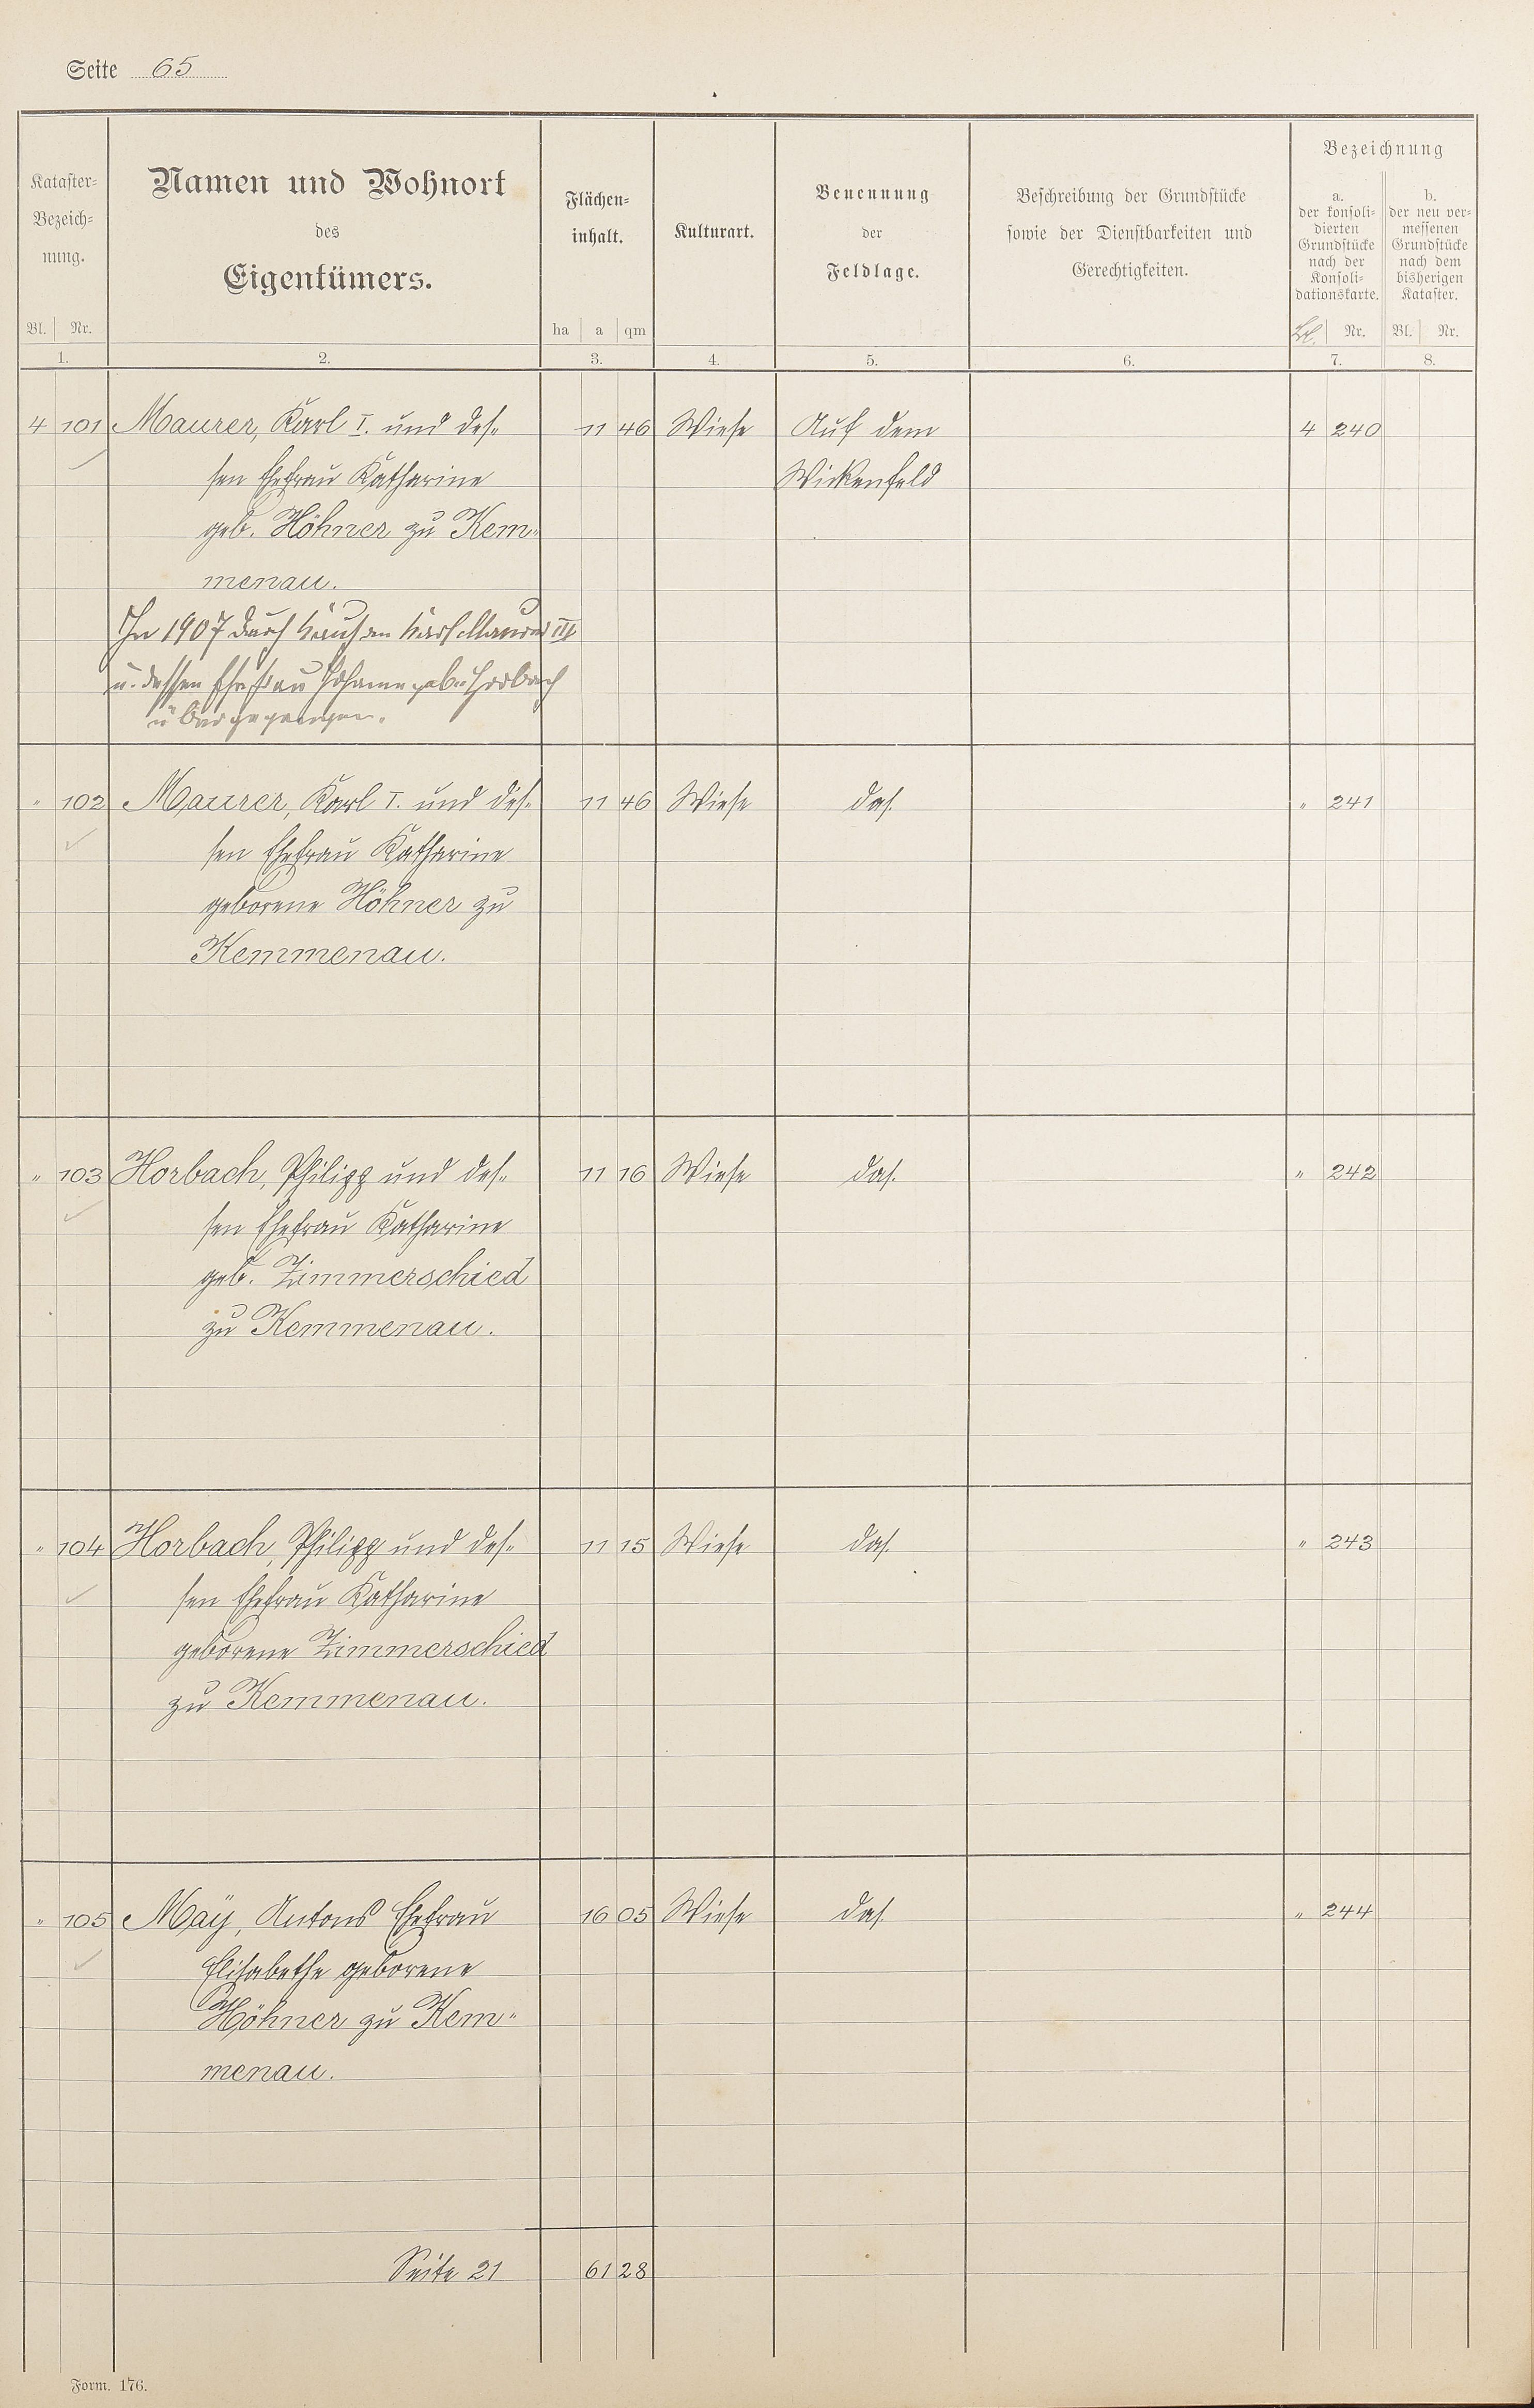 Seite 65
Kataster-
Bezeich-
nung.
Bl. Nr.
1.
Namen und Wohnort
des
Eigentümers.
2.
Flächen-
inhalt.
ha a qm
3.
Kulturart.
4.
Benennung
der
Feldlage.
5.
Beschreibung der Grundstücke
sowie der Dienstbarkeiten und
Gerechtigkeiten.
6.
Bezeichnung
a.
der konsoli-
dierten
Grundstücke
nach der
Konsoli-
dationskarte.
Bl. Nr.
7.
b.
der neu ver-
messenen
Grundstücke
nach dem
bisherigen
Kataster.
Bl. Nr.
8.
4 101 Maurer, Karl I. und des- 11 46 Wiese Auf dem 4 240
sen Ehefrau Katharine Wickenfeld
geb. Höhner zu Kem-
menau.
In 1907 durch Kauf an Karl Maurer III
u. dessen Ehefrau Johanna geb. Horbach
übergegangen.
" 102 Maurer, Karl I. und des- 11 46 Wiese das. " 241
sen Ehefrau Katharine
geborene Höhner zu
Kemmenau.
" 103 Horbach, Philipp und des- 11 16 Wiese das. " 242
sen Ehefrau Katharine
geb. Zimmerschied
zu Kemmenau.
" 104 Horbach, Philipp und des- 11 15 Wiese das. " 243
sen Ehefrau Katharine
geborene Zimmerschied
zu Kemmenau.
" 105 Maÿ, Antons Ehefrau 16 05 Wiese das. " 244
Elisabethe geborene
Höhner zu Kem-
menau.
Seite 21 61 28
Form. 176.